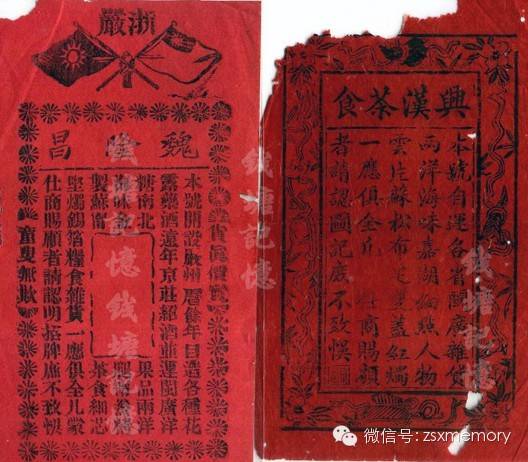 浙嚴
魏 昌
本號開設嚴州 年自造各種花
露藥酒遠年京莊紹酒並運閩廣洋
糖南北 果品兩洋
海味金
製蘇 茶食細芯
堅燭錫箔糧食雜貨一應俱全凡蒙
仕商賜顧者請認明招牌庶不致悞
童叟無欺
興漢茶食
本號自運各省閩廣雜貨
兩洋海味嘉湖細點人物
雲片蘇松布 蓋紅燭
一應俱全凡 商賜顧
者請認圖記庶不致悞
钱塘記憶
钱塘記憶
钱塘記憶
微信号: zsxmemory